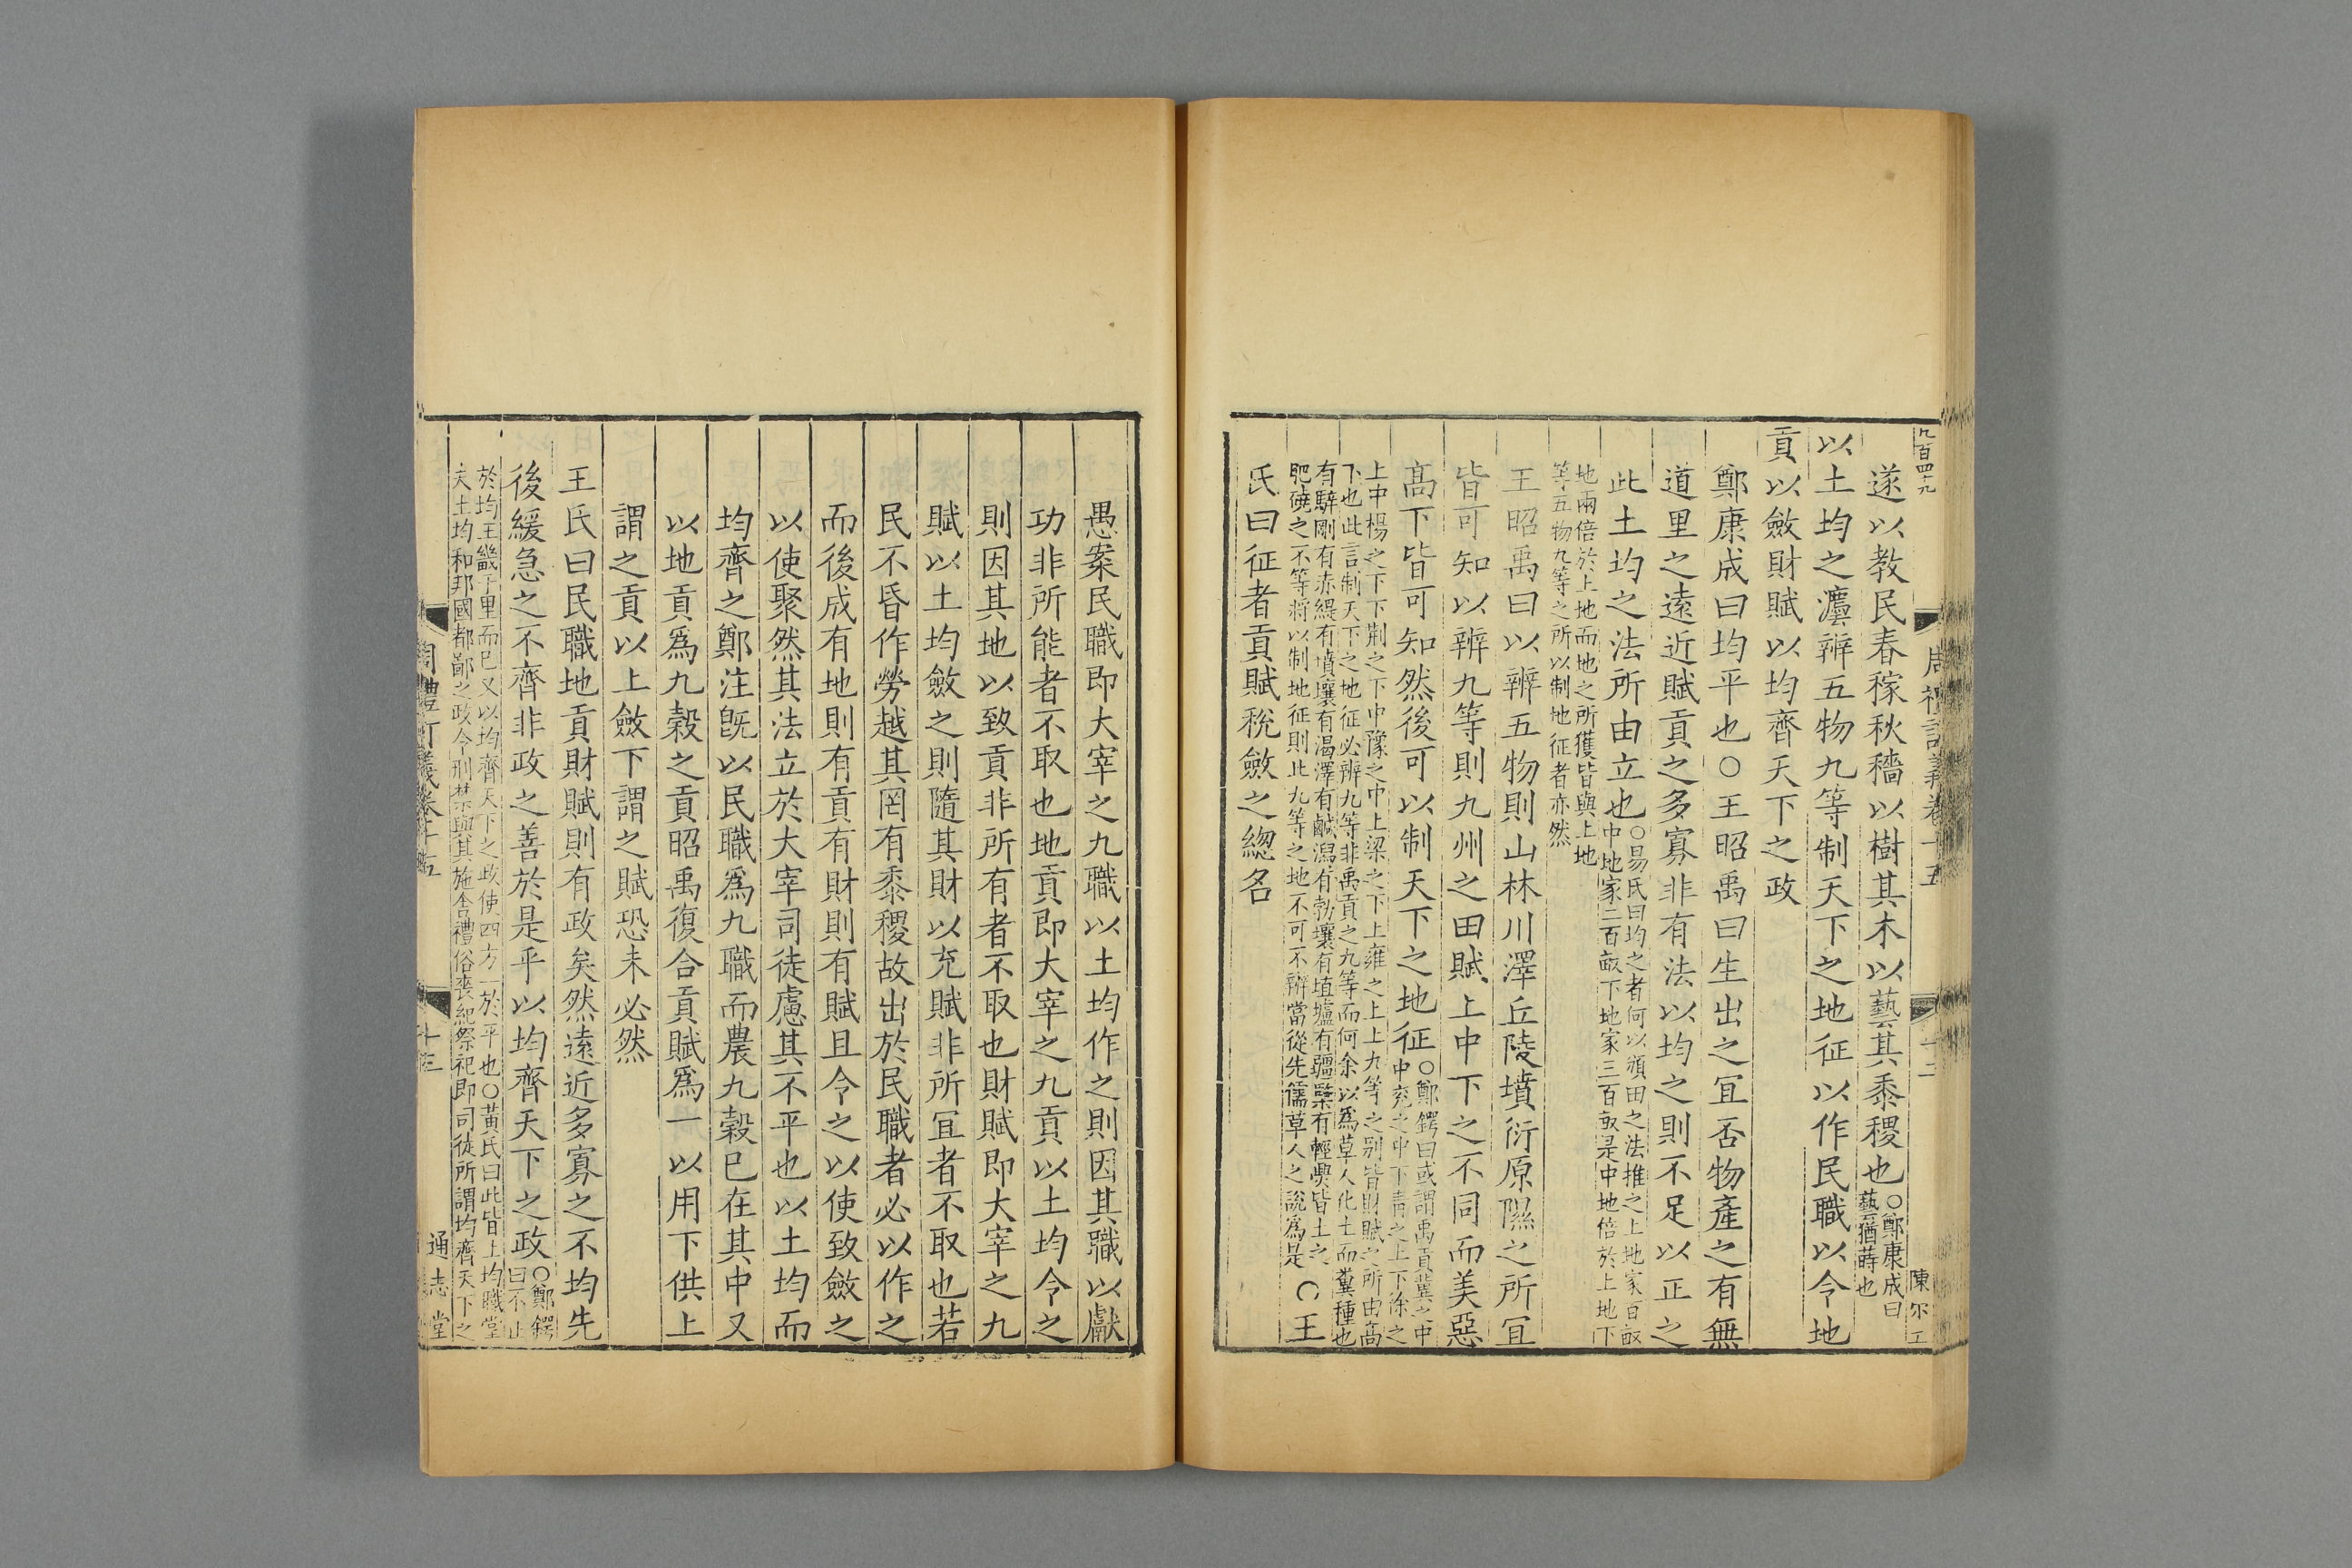 遂以教民春稼秋穡以樹其木以藝其黍稷也○鄭康成曰
藝猶蒔也
以土均之灋辨五物九等制天下之地征以作民職以令地
貢以斂財賦以均齊天下之政
鄭康成曰均平也○王昭禹曰生出之宜否物產之有無
道里之遠近賦貢之多寡非有法以均之則不足以正之
此土均之法所由立也○易氏曰均之者何以頒田之法推之上地家百畝
中地家二百畝下地家三百畝是中地倍於上地下
地兩倍於上地而地之所獲皆與上地
等五物九等之所以制地征者亦然
王昭禹曰以辨五物則山林川澤丘陵墳衍原隰之所宜
皆可知以辨九等則九州之田賦上中下之不同而美惡
高下皆可知然後可以制天下之地征○鄭鍔曰或謂禹貢冀之中
中兖之中下青之上下徐之
上中楊之下下荆之下中豫之中上梁之下上雍之上上九等之别皆財賦之所由高
下也此言制天下之地征必辨九等非禹貢之九等而何余以為草人化土而糞種也
有騂剛有赤緹有墳壤有渴澤有鹹潟有勃壤有埴壚有彊㯺有輕㷿皆土之
肥磽之不等將以制地征則此九等之地不可不辨當從先儒草人之說為是○王
氏曰征者貢賦稅斂之總名
周禮訂義卷十五
陳尔工
愚案民職即大宰之九職以土均作之則因其職以獻
功非所能者不取也地貢即大宰之九貢以土均令之
則因其地以致貢非所有者不取也財賦即大宰之九
賦以土均斂之則隨其財以充賦非所宜者不取也若
民不昏作勞越其罔有黍稷故出於民職者必以作之
而後成有地則有貢有財則有賦且令之以使致斂之
以使聚然其法立於大宰司徒慮其不平也以土均而
均齊之鄭注旣以民職爲九職而農九穀已在其中又
以地貢爲九穀之貢昭禹復合貢賦爲一以用下供上
謂之貢以上斂下謂之賦恐未必然
王氏曰民職地貢財賦則有政矣然遠近多寡之不均先
後緩急之不齊非政之善於是乎以均齊天下之政○鄭鍔
曰不止
於均王畿千里而已又以均齊天下之政使四方一於平也○黄氏曰此皆土均職掌
夫土均和邦國都鄙之政令刑禁與其施舍禮俗喪紀祭祀即司徒所謂均齊天下之
通志堂